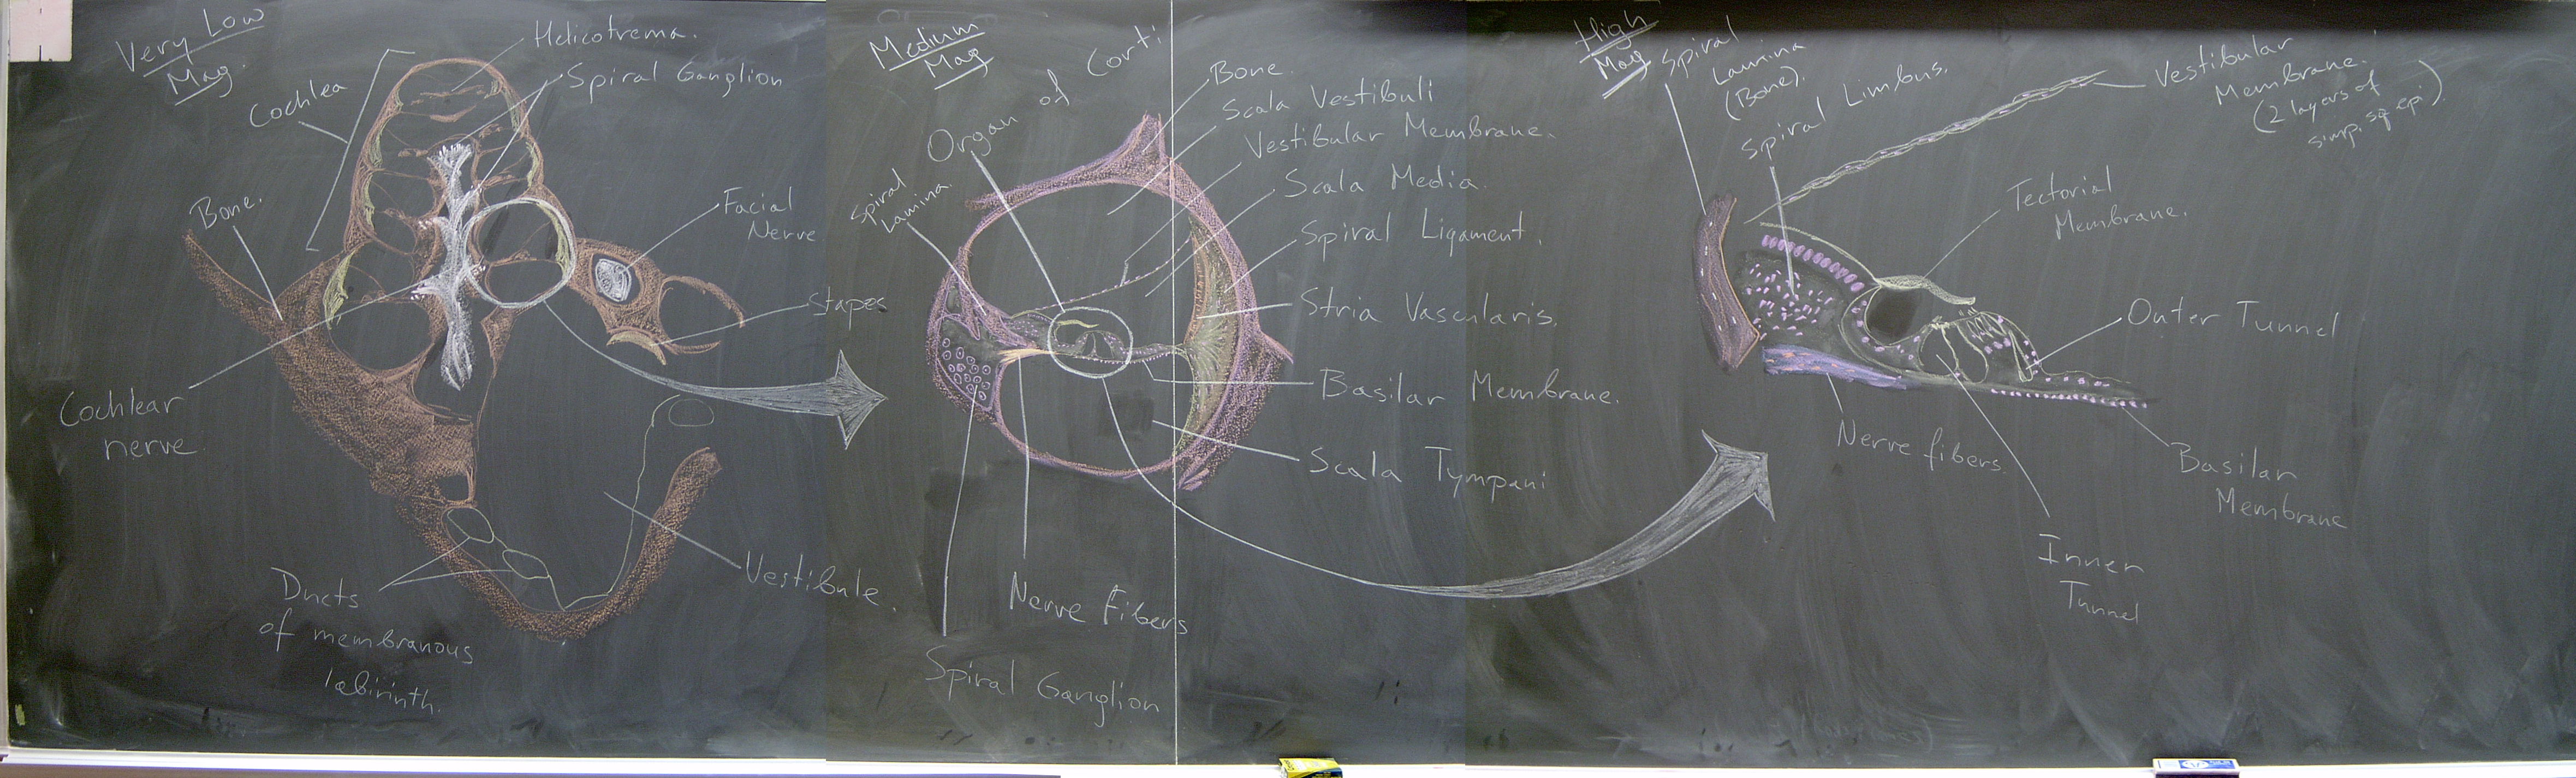 Very Low
Mag.
Helicotrema.
Spiral Ganglion
Cochlea
Bone.
Facial
Nerve
Stapes
Cochlear
nerve.
Ducts
of membranous
labirinth.
Vestibule.
Medium
Mag
Organ of Corti
Bone.
Scala Vestibuli
Vestibular Membrane.
Scala Media.
Spiral Ligament.
Stria Vascularis.
Basilar Membrane.
Scala Tympani
Spiral
Lamina.
Nerve Fibers
Spiral Ganglion
High
Mag
Spiral
Lamina
(Bone).
Spiral Limbus.
Vestibular
Membrane.
(2 layers of
simp. sq epi)
Tectorial
Membrane.
Outer Tunnel
Nerve fibers.
Basilar
Membrane
Inner
Tunnel